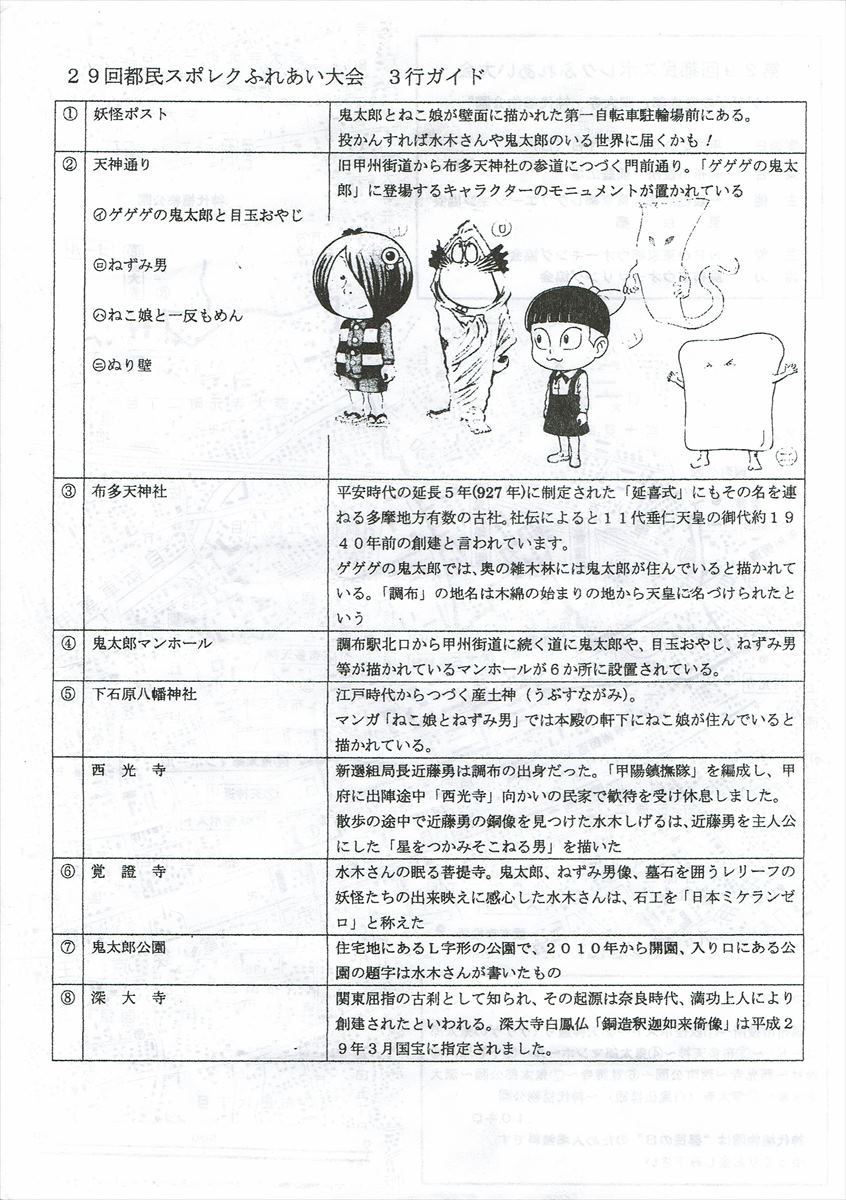 ２９回都民スポレクふれあい大会　３行ガイド
① 妖怪ポスト
鬼太郎とねこ娘が壁面に描かれた第一自転車駐輪場前にある。
投かんすれば水木さんや鬼太郎のいる世界に届くかも！
② 天神通り
㋑ゲゲゲの鬼太郎と目玉おやじ
㋺ねずみ男
㋩ねこ娘と一反もめん
㋥ぬり壁
旧甲州街道から布多天神社の参道につづく門前通り。「ゲゲゲの鬼太
郎」に登場するキャラクターのモニュメントが置かれている
㋑
㋺
㋩
㋥
③ 布多天神社
平安時代の延長５年(927年)に制定された「延喜式」にもその名を連
ねる多摩地方有数の古社。社伝によると１１代垂仁天皇の御代約１９
４０年前の創建と言われています。
ゲゲゲの鬼太郎では、奥の雑木林には鬼太郎が住んでいると描かれて
いる。「調布」の地名は木綿の始まりの地から天皇に名づけられたと
いう
④ 鬼太郎マンホール
調布駅北口から甲州街道に続く道に鬼太郎や、目玉おやじ、ねずみ男
等が描かれているマンホールが６か所に設置されている。
⑤ 下石原八幡神社
江戸時代からつづく産土神（うぶすながみ）。
マンガ「ねこ娘とねずみ男」では本殿の軒下にねこ娘が住んでいると
描かれている。
西　光　寺
新選組局長近藤勇は調布の出身だった。「甲陽鎮撫隊」を編成し、甲
府に出陣途中「西光寺」向かいの民家で歓待を受け休息しました。
散歩の途中で近藤勇の銅像を見つけた水木しげるは、近藤勇を主人公
にした「星をつかみそこねる男」を描いた
⑥ 覚　證　寺
水木さんの眠る菩提寺。鬼太郎、ねずみ男像、墓石を囲うレリーフの
妖怪たちの出来映えに感心した水木さんは、石工を「日本ミケランゼ
ロ」と称えた
⑦ 鬼太郎公園
住宅地にあるＬ字形の公園で、２０１０年から開園、入り口にある公
園の題字は水木さんが書いたもの
⑧ 深　大　寺
関東屈指の古刹として知られ、その起源は奈良時代、満功上人により
創建されたといわれる。深大寺白鳳仏「銅造釈迦如来倚像」は平成２
９年３月国宝に指定されました。